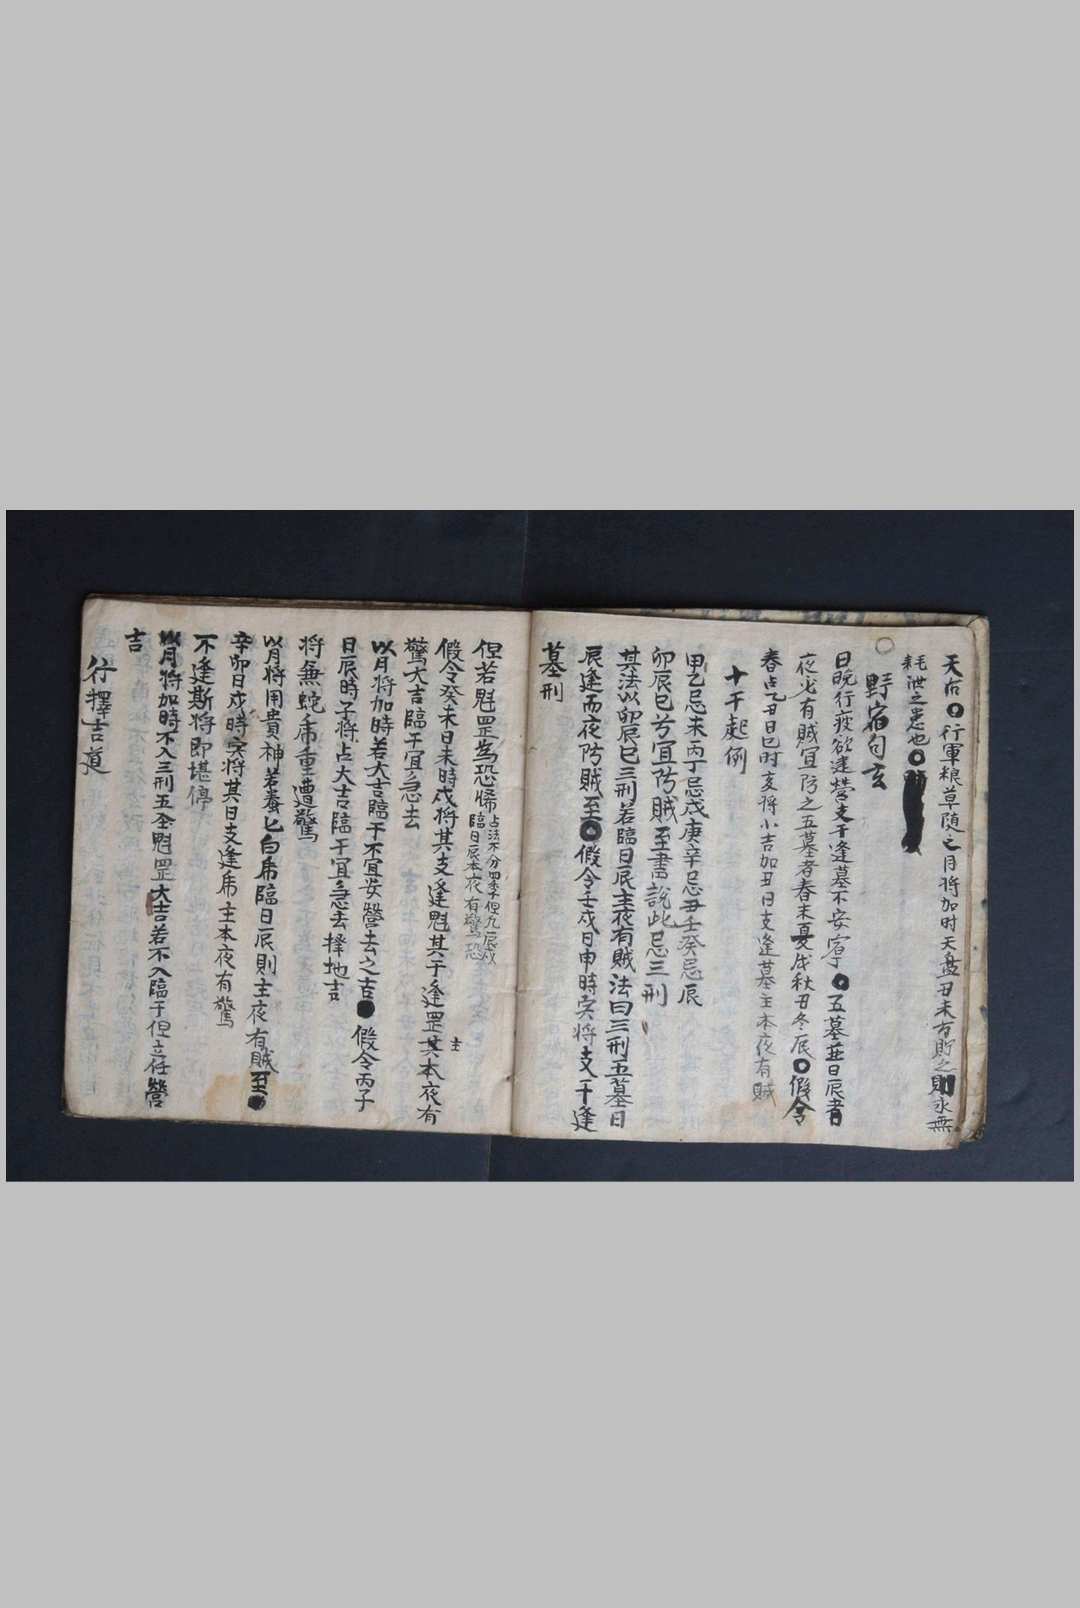 天㾑〇行軍粮草随之月将加时天盘丑未方貯之則永無
耗泄之患也〇
野宿句玄
日晚行疲欲建營支干逢墓不安寧〇五墓並日辰者
夜必有賊宜防之五墓者春未夏戌秋丑冬辰〇假令
春占乙丑日巳时亥将小吉加丑日支逢墓主本夜有賊
十干起例
甲乙忌未丙丁忌戌庚辛忌丑壬癸忌辰
卯辰巳方宜防賊至書說此忌三刑
其法以卯辰巳三刑若臨日辰主夜有賊法曰三刑五墓日
辰逢而夜防賊至〇假令壬戌日申時寅将支干逢
墓刑
但若魁罡為恐怖占法不分四季但九辰戌
臨日辰本夜有驚恐
假令癸未日未時戌将其支逢魁其干逢罡主其本夜有
驚大吉臨干宜急去
以月将加時若大吉臨干不宜安營去之吉〇假令丙子
日辰時子将占大吉臨干宜急去擇地吉
将無蛇虎重遭驚
以月将用貴神若奏匕白虎臨日辰則主夜有賊至〇
辛卯日戌時寅将其日支逢虎主本夜有驚
不逢斯将即堪停
以月将加時不入三刑五墓魁罡大吉若不入臨干但立在營
吉
行擇吉道